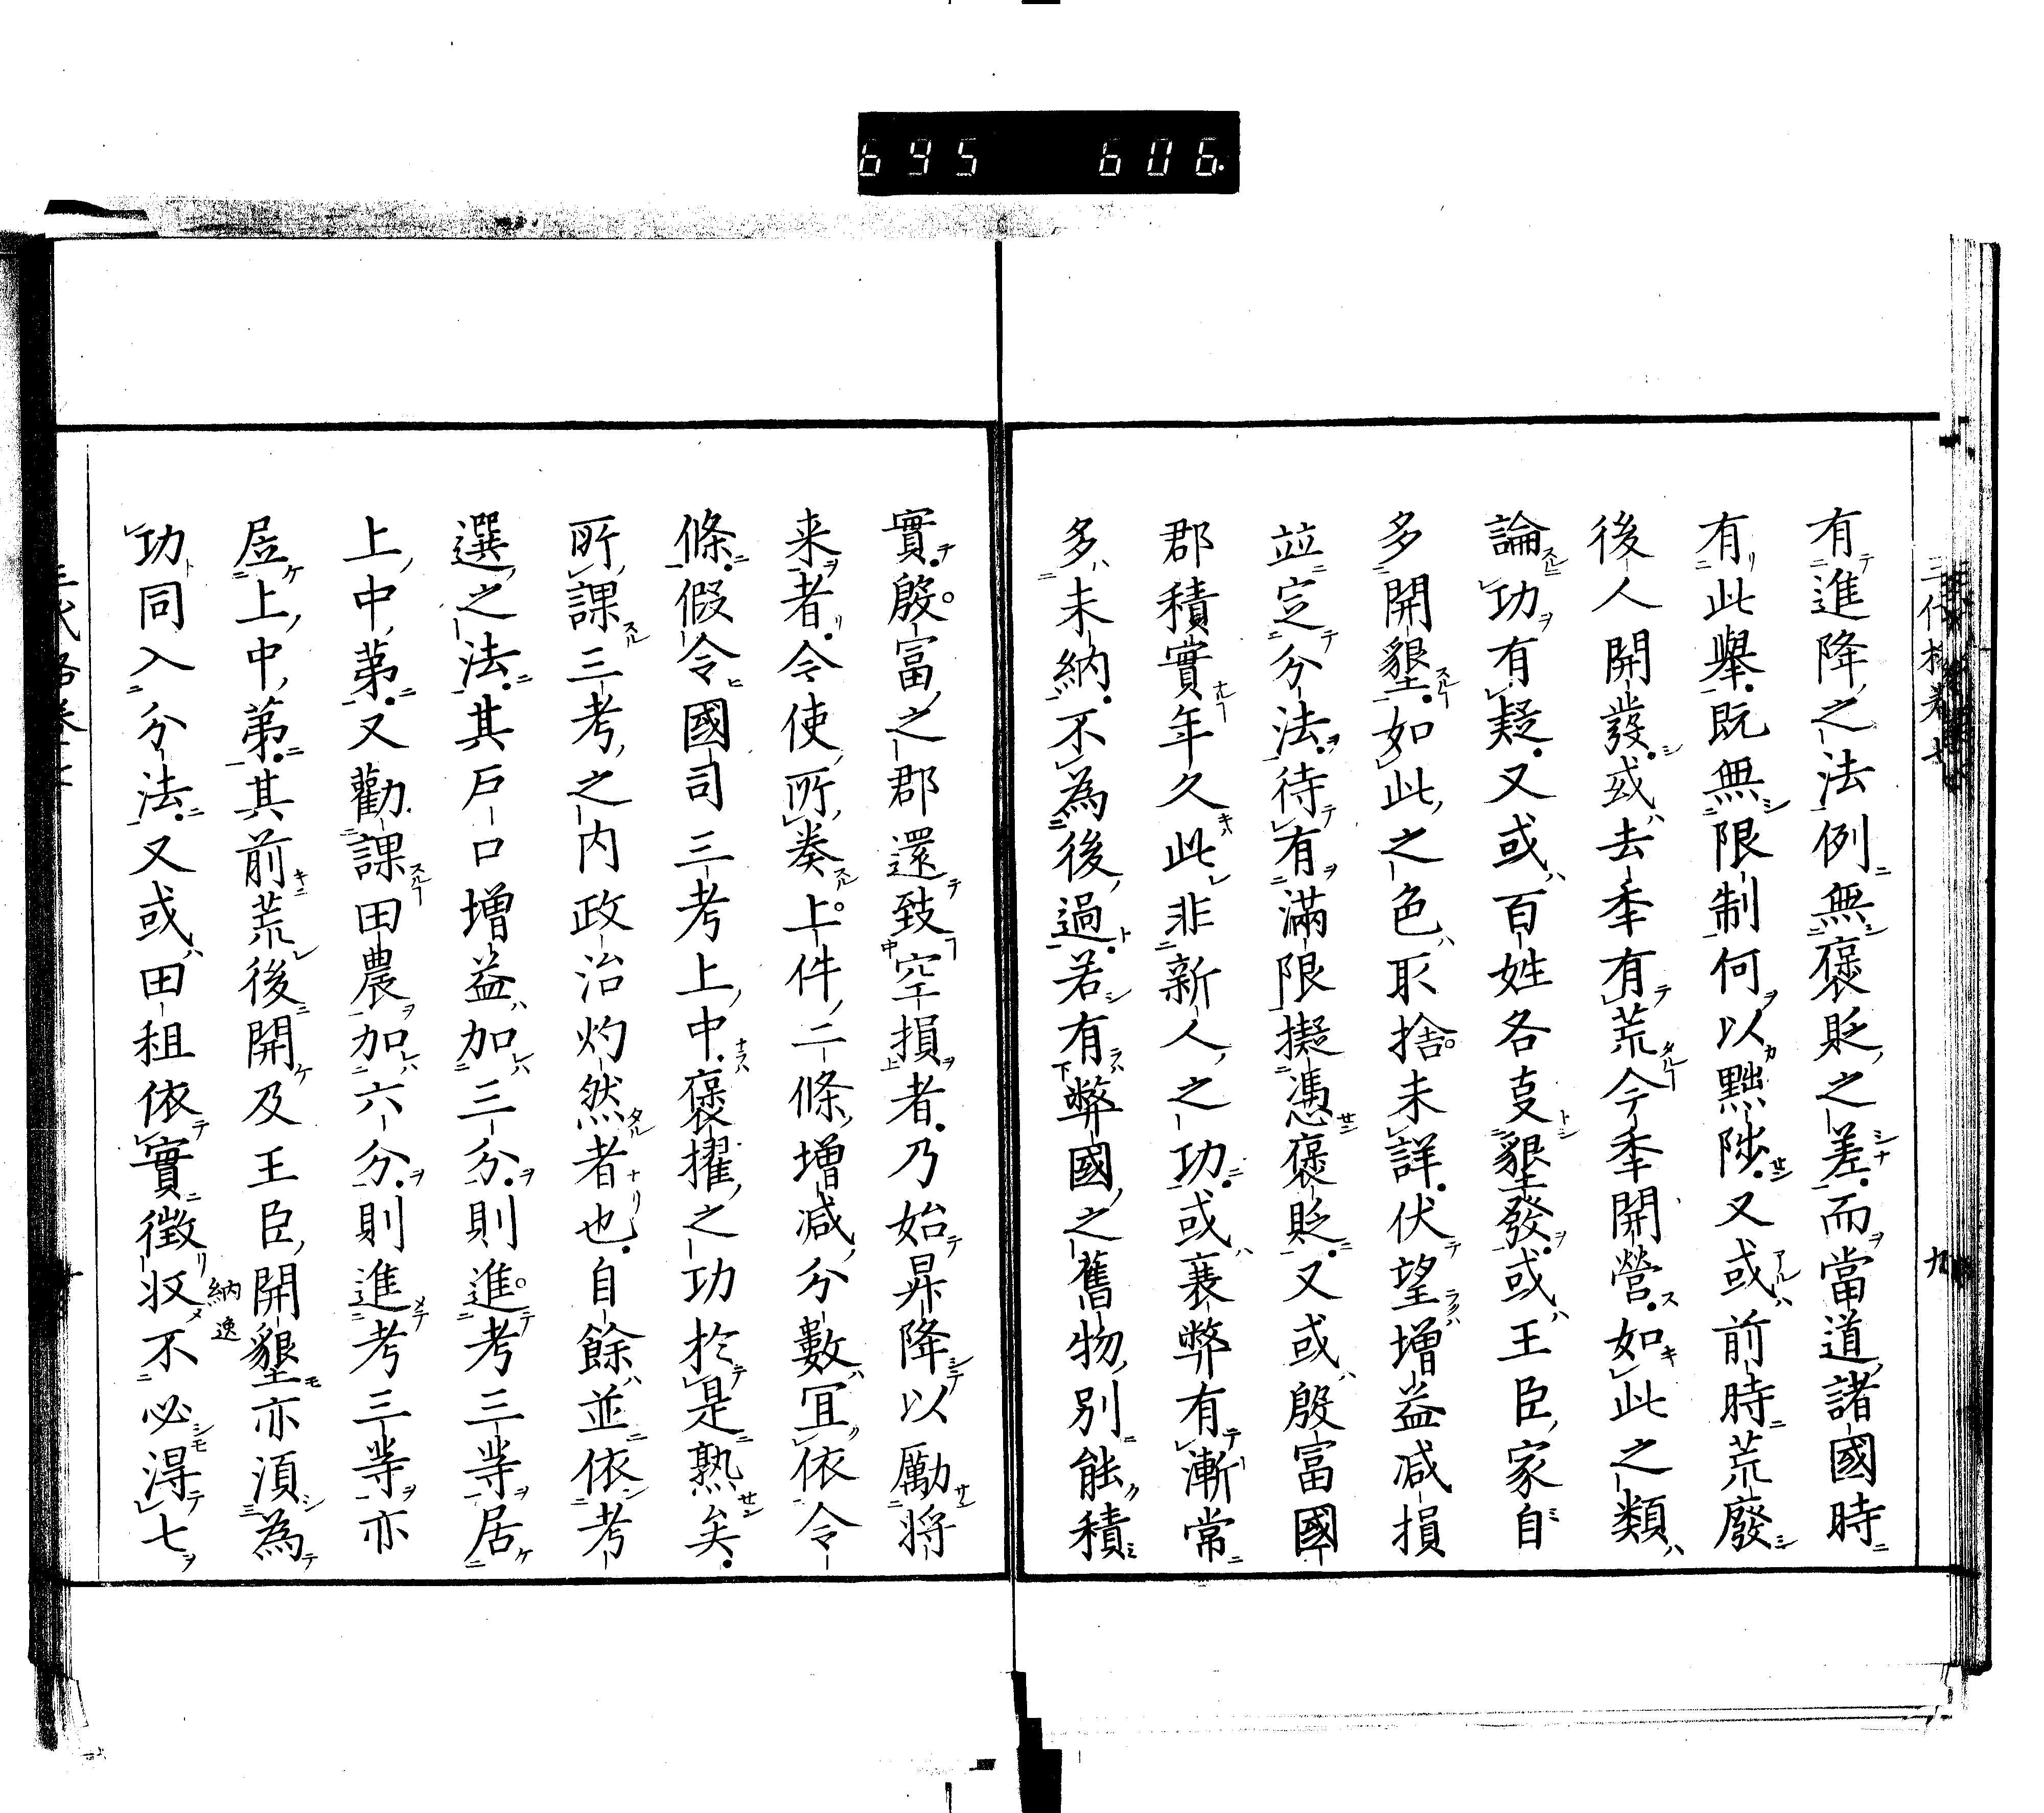 695 606.
三代格 卷七
九
有進降之法例無褒貶之差而當道諸國時
有此舉既無限制何以黜陟又或前時荒廢
後人開發或去秊有荒今秊開營如此之類
論功有疑又或百姓各㕝墾發或王臣家自
多開墾如此之色取捨未詳伏望增益減損
竝定分法待有滿限擬憑褒貶又或殷富國
郡積實年久此非新人之功或衰弊有漸常
多未納不為後過若有弊國之舊物別能積
實殷富之郡還致空損者乃始昇降以勵将
来者令使所奏上件二條增減分數宜依令
條假令國司三考上中褒擢之功於是熟矣
所課三考之内政治灼然者也自餘並依考
選之法其戸口增益加三分則進考三等居
上中第又勸課田農加六分則進考三等亦
居上中第其前荒後開及王臣開墾亦須為
功同入分法又或田租依實徴収不必得七
納逸
三代格卷七